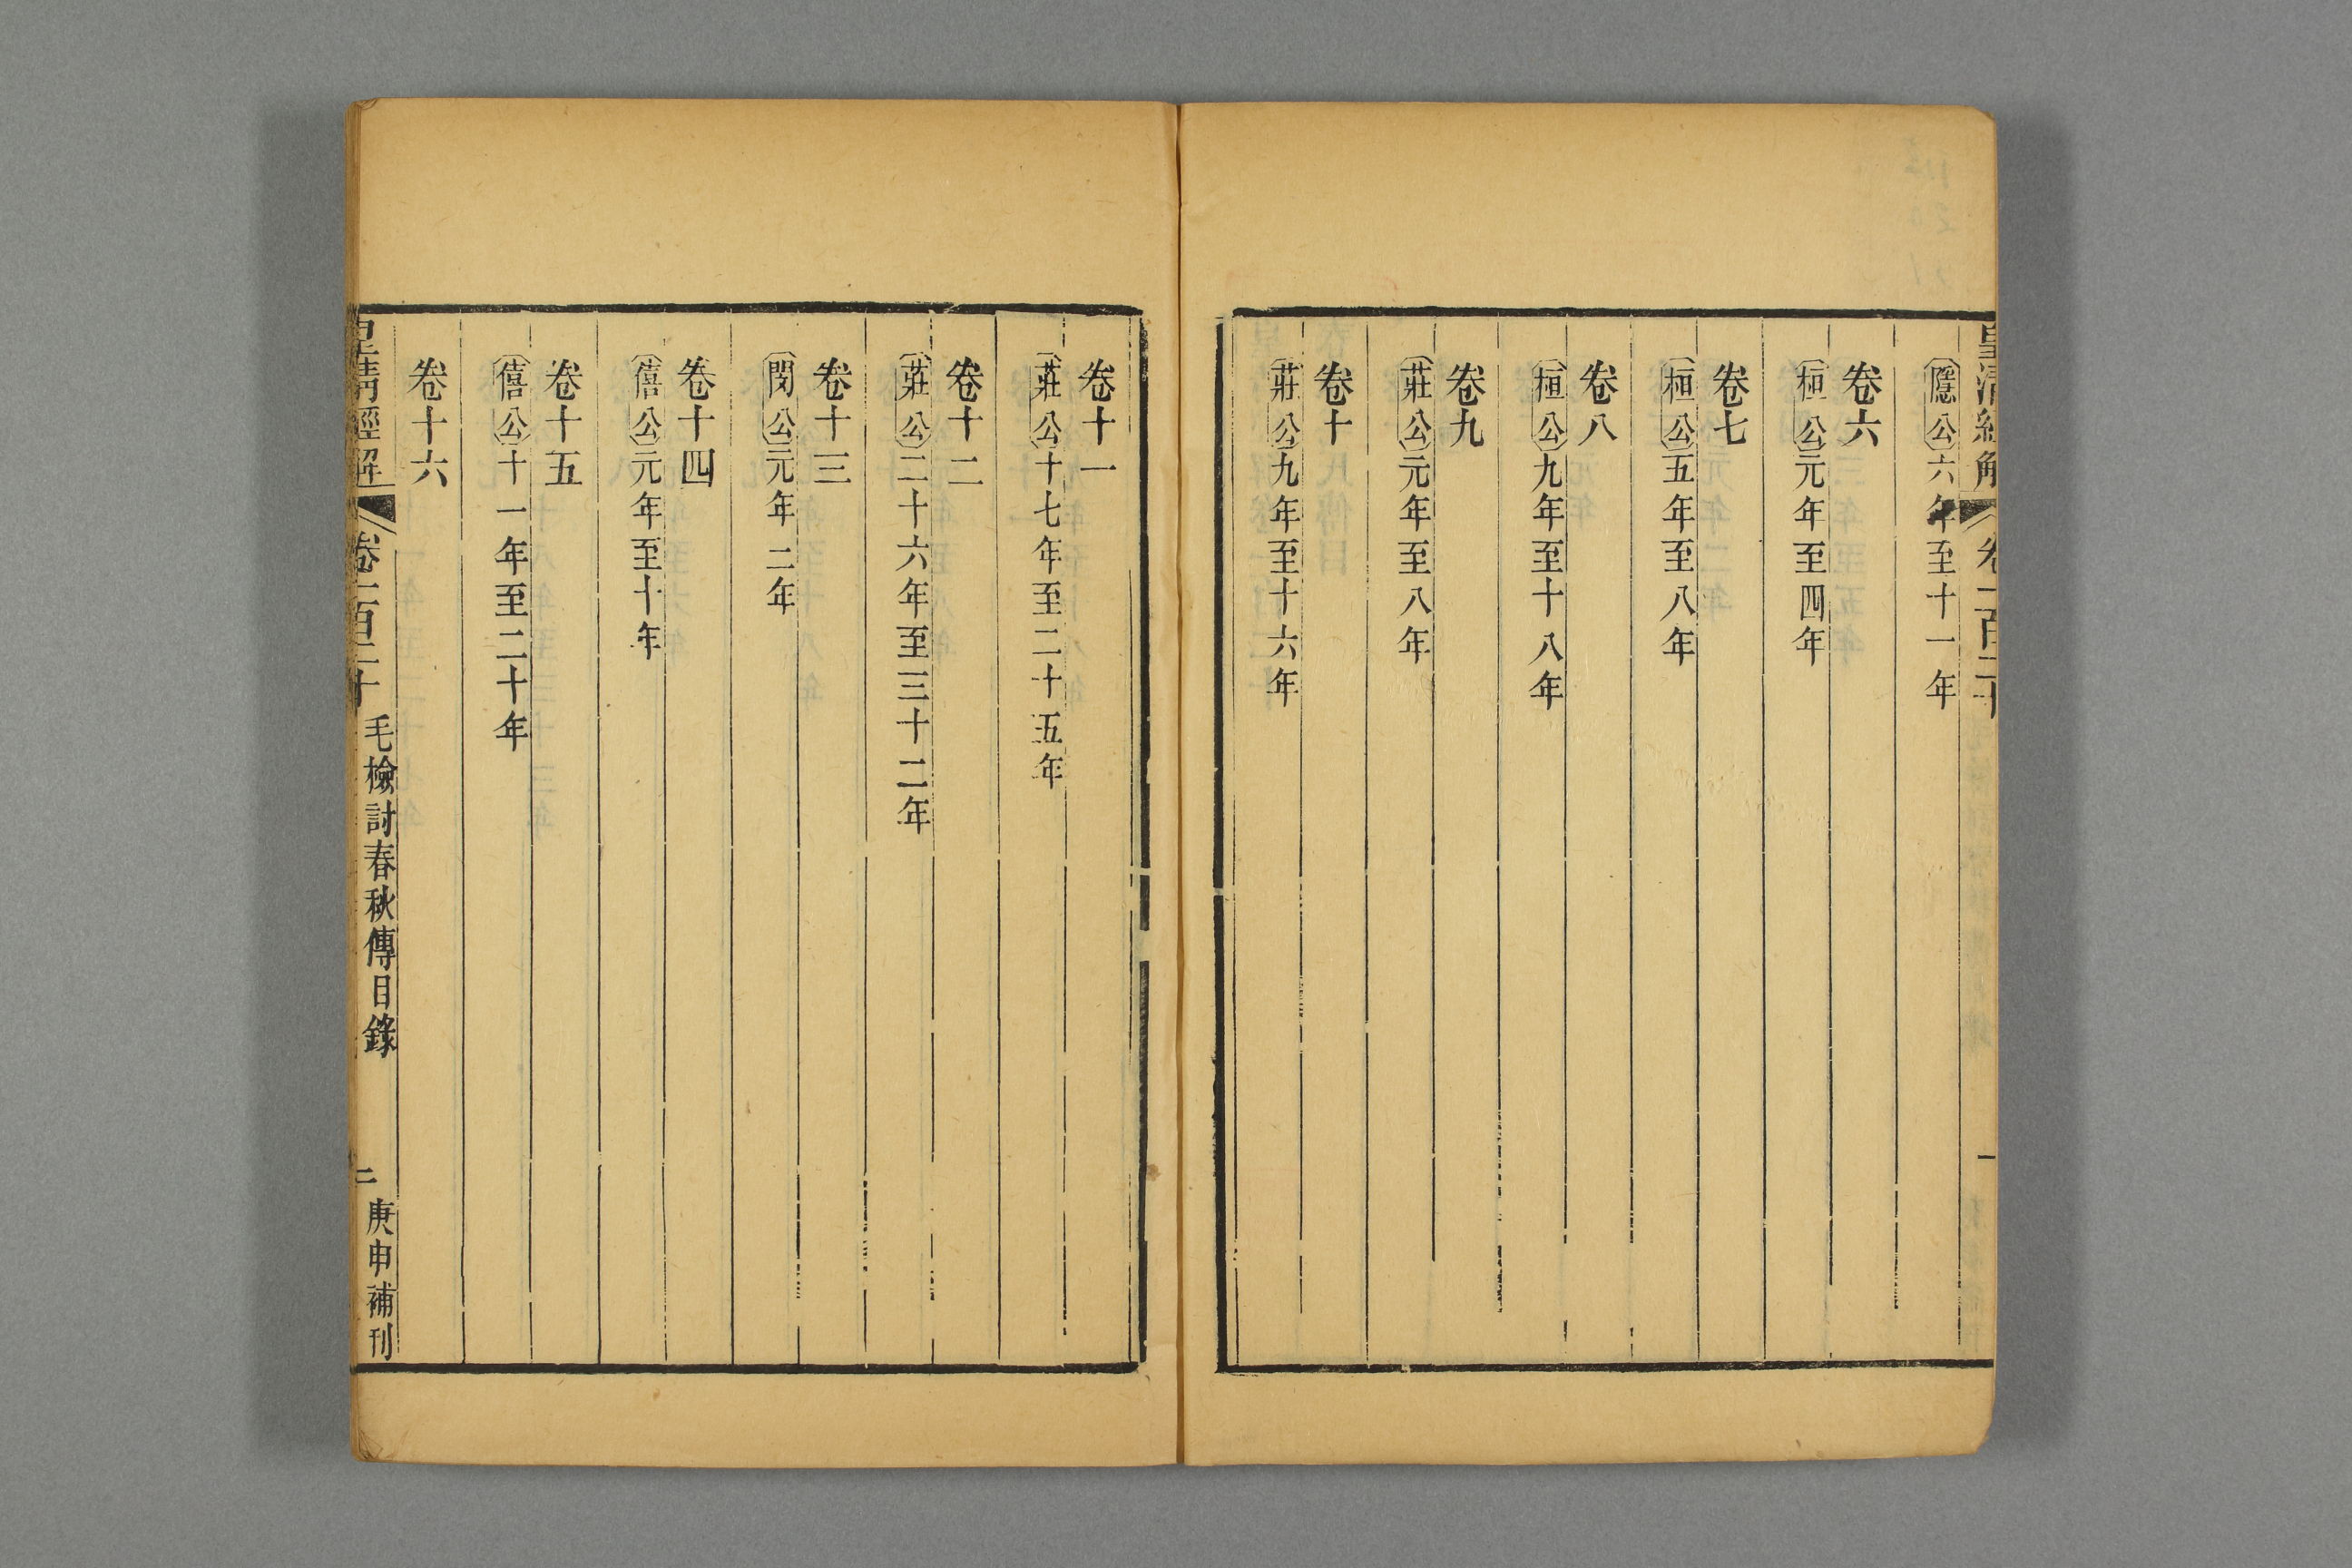 皇清經解 卷一百二十 一
隱公六年至十一年
卷六
桓公元年至四年
卷七
桓公五年至八年
卷八
桓公九年至十八年
卷九
莊公元年至八年
卷十
莊公九年至十六年
卷十一
莊公十七年至二十五年
卷十二
莊公二十六年至三十二年
卷十三
閔公元年二年
卷十四
僖公元年至十年
卷十五
僖公十一年至二十年
卷十六
皇清經解 卷一百二十 毛檢討春秋傳目錄 二 庚申補刊